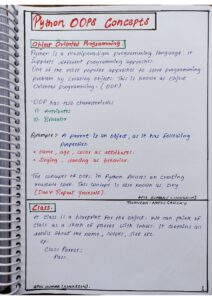 Python OOPS Concepts
Object Oriented Programming:
Python is a multiparadigm programming language. It
supports different programming approaches.
One of the most popular approaches to solve programming
problem by creating objects. This is known as object
Oriented programming. (OOP)
OOP has two characteristics
1) Attributes
2) Behavior
Example: A parrot is an object, as it has following
Properties
• name, age, color as attributes.
• Singing, dancing as behavior.
The concept of OOPs in Python focuses on creating
reusable code. This concept is also known as DRY
[Don't Repeat Yourself].
Class:
A class is a blueprint for the object. We can think of
class as a sketch of parrot with labels. It contains all
details about the name, colors, size etc.
ex:
Class Parrot:
Pass.